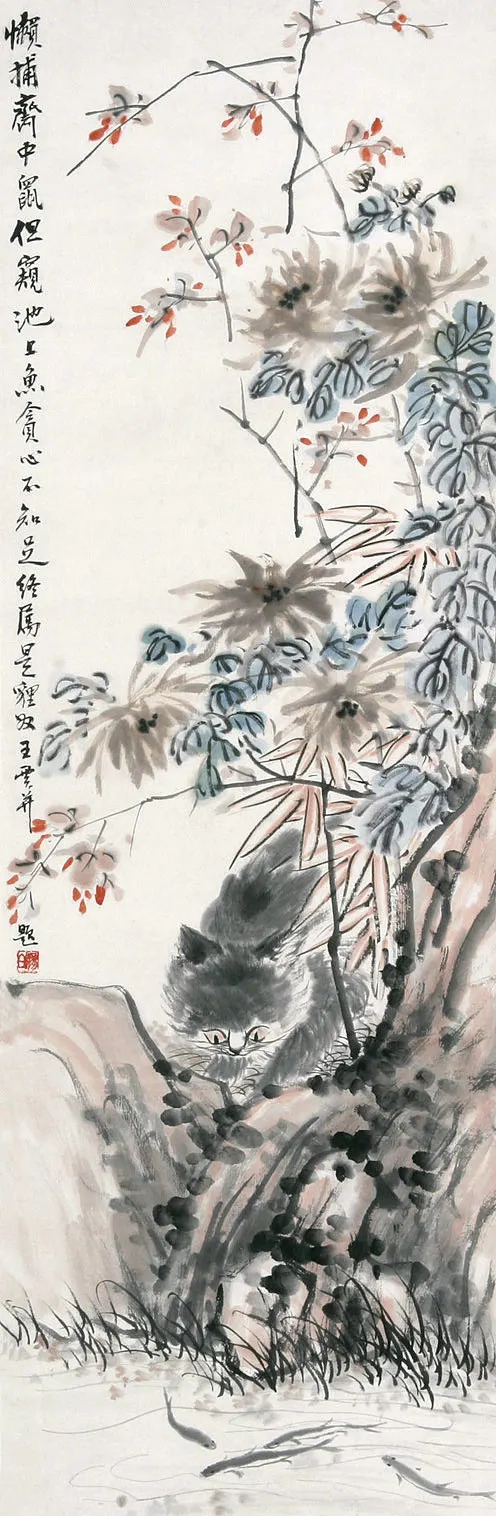 懶捕齋中鼠但窺池上魚貪心不知足終屬是貍奴王雲并題